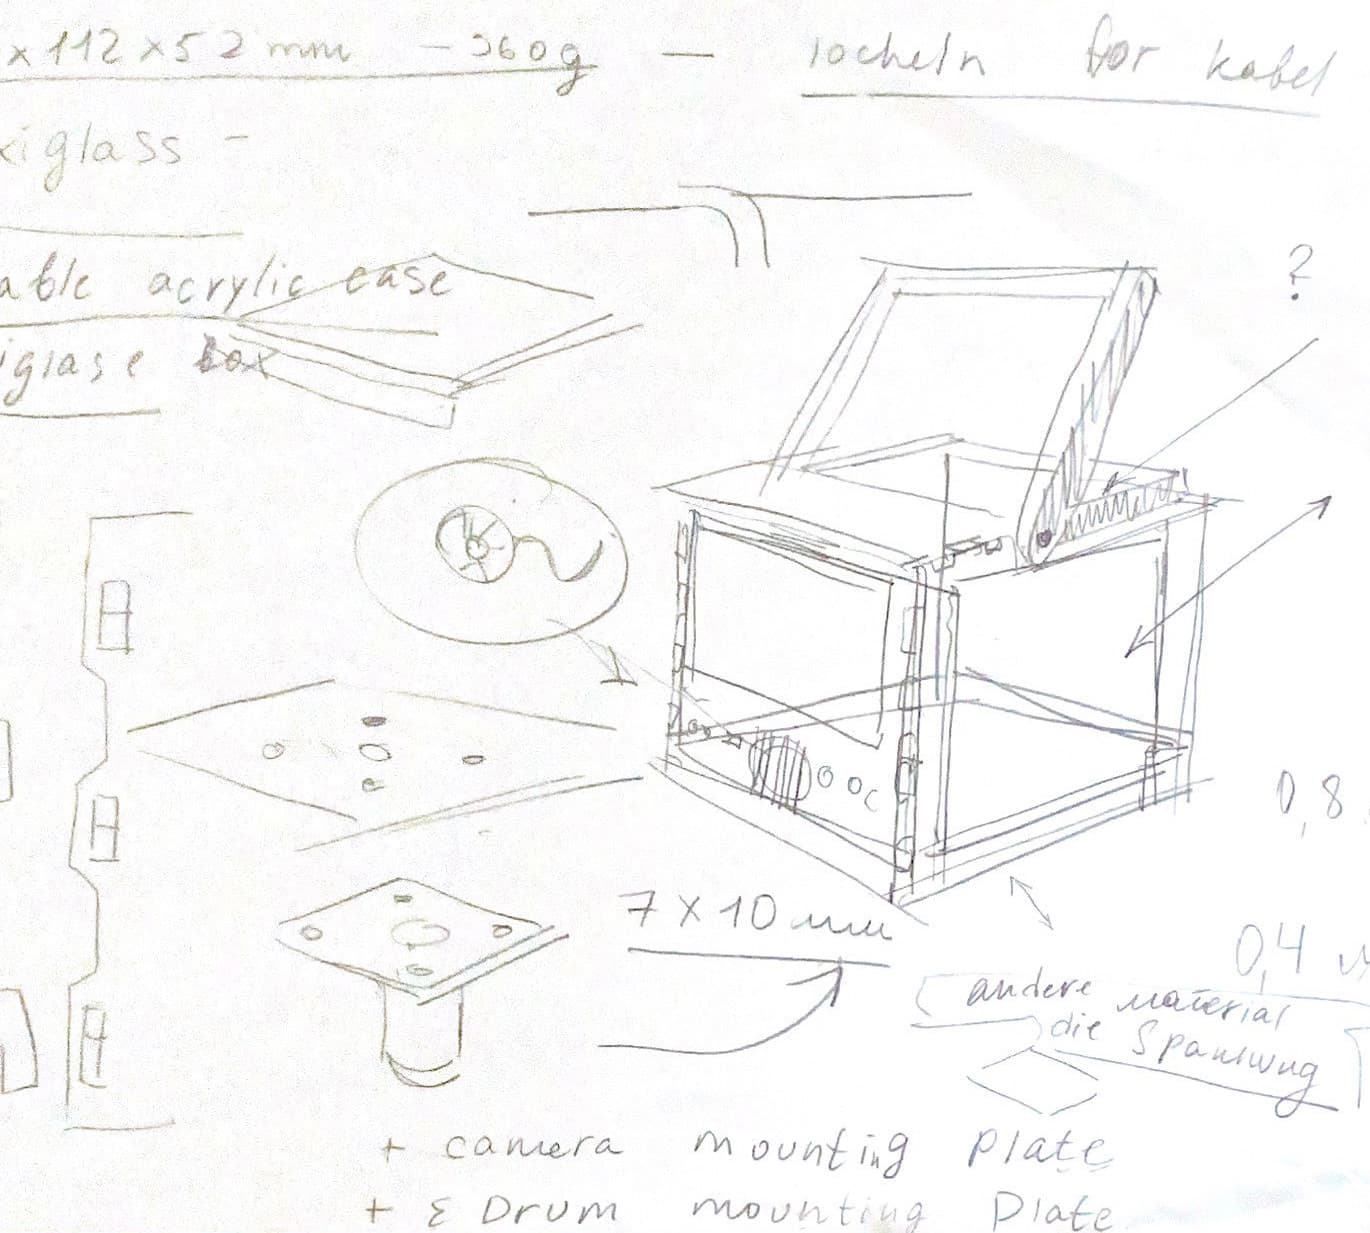 x 112 x 52 mm - 360g — locheln for kabel
xiglass -
able acrylic case
iglase box
?
0,8
7 x 10 mm
0,4 м
andere material
die Spannung
+ camera mounting Plate
+ E Drum mounting Plate